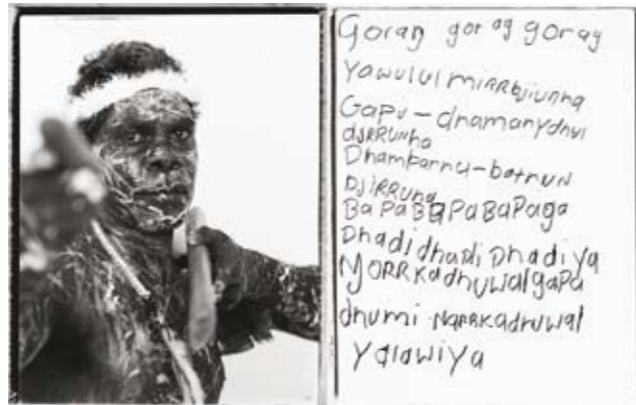 Gorag gorag gorag
Yawulul mirrbjiunha
Gapu-dnamanydnui
djRRUNha
Dhambarnu-batnun
DjiRRUna
BaPaBaPaBaPaga
Dhadidhadi Dhadiya
NORRKadhuwalgapa
dhumi-NaRRKadhuwal
Yalawiya